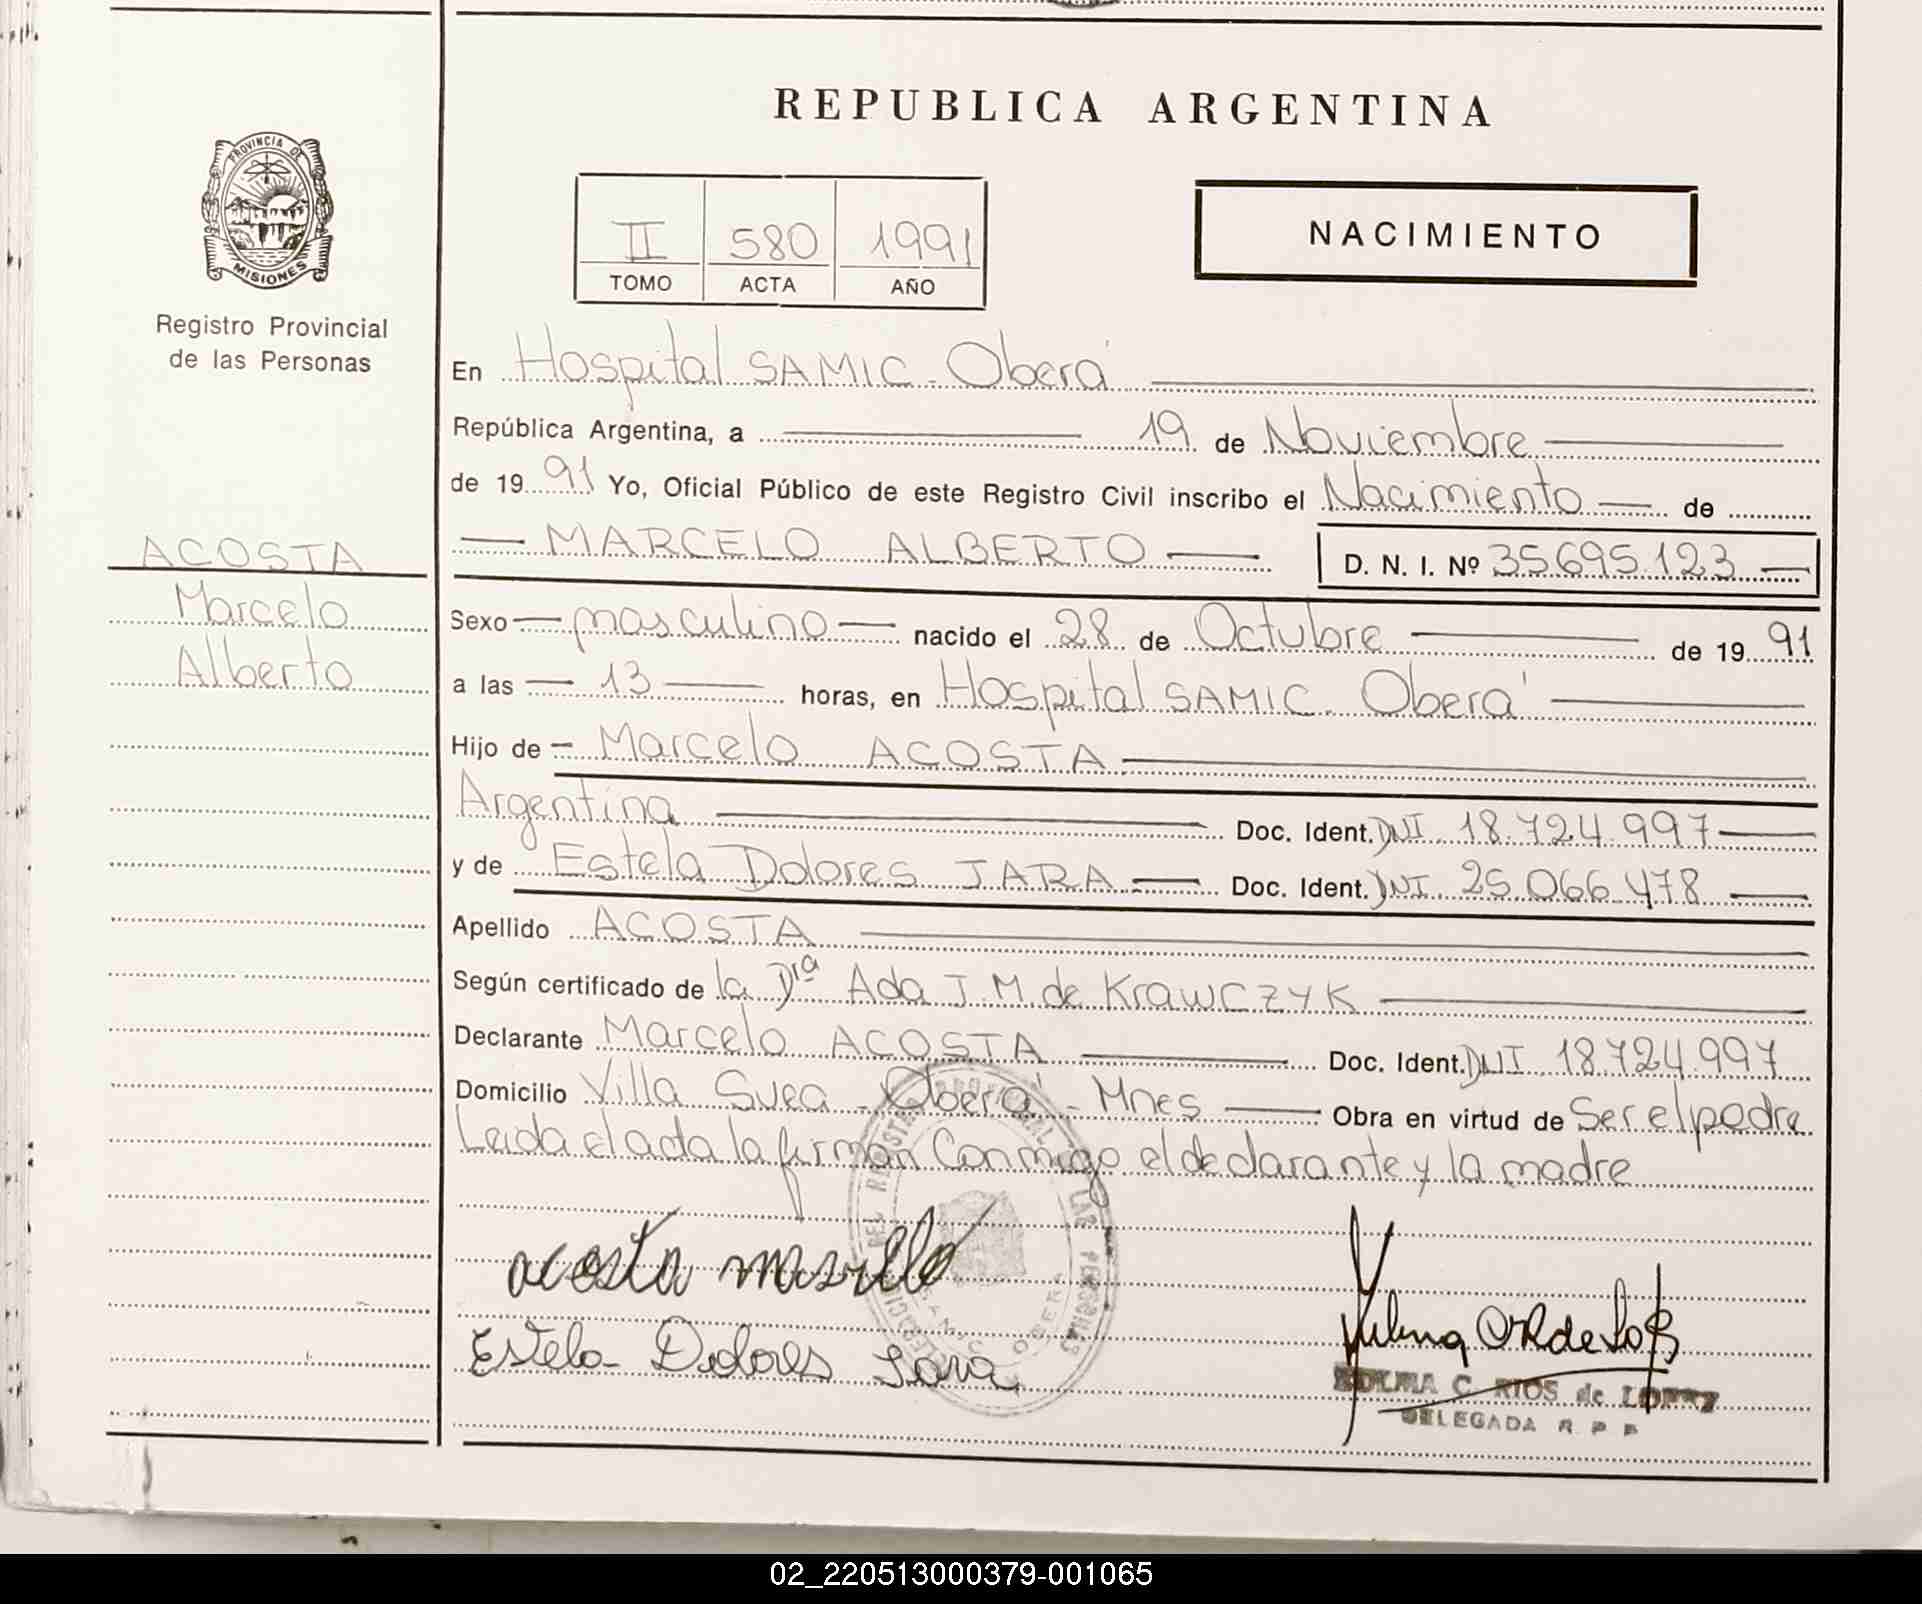 REPUBLICA ARGENTINA
PROVINCIA DE
MISIONES
Registro Provincial
de las Personas
II 580 1991
TOMO ACTA AÑO
NACIMIENTO
En Hospital SAMIC - Oberá
República Argentina, a 19 de Noviembre
de 19 91 Yo, Oficial Público de este Registro Civil inscribo el Nacimiento de
MARCELO ALBERTO D. N. I. Nº 35.695.123
ACOSTA
Marcelo
Alberto
Sexo masculino nacido el 28 de Octubre de 19 91
a las 13 horas, en Hospital SAMIC - Oberá
Hijo de Marcelo ACOSTA
Argentina Doc. Ident. DNI. 18.724.997
y de Estela Dolores JARA Doc. Ident. DNI. 25.066.478
Apellido ACOSTA
Según certificado de la Dra Ada J. M. de Krawczyk
Declarante Marcelo ACOSTA Doc. Ident. DNI. 18.724.997
Domicilio Villa Svea - Oberá - Mnes Obra en virtud de Ser el padre
Leida el acta la firman Conmigo el declarante y la madre
acosta marcelo
Estela Dolores Jara
C. RIOS de LOPEZ
DELEGADA R P P
02_220513000379-001065